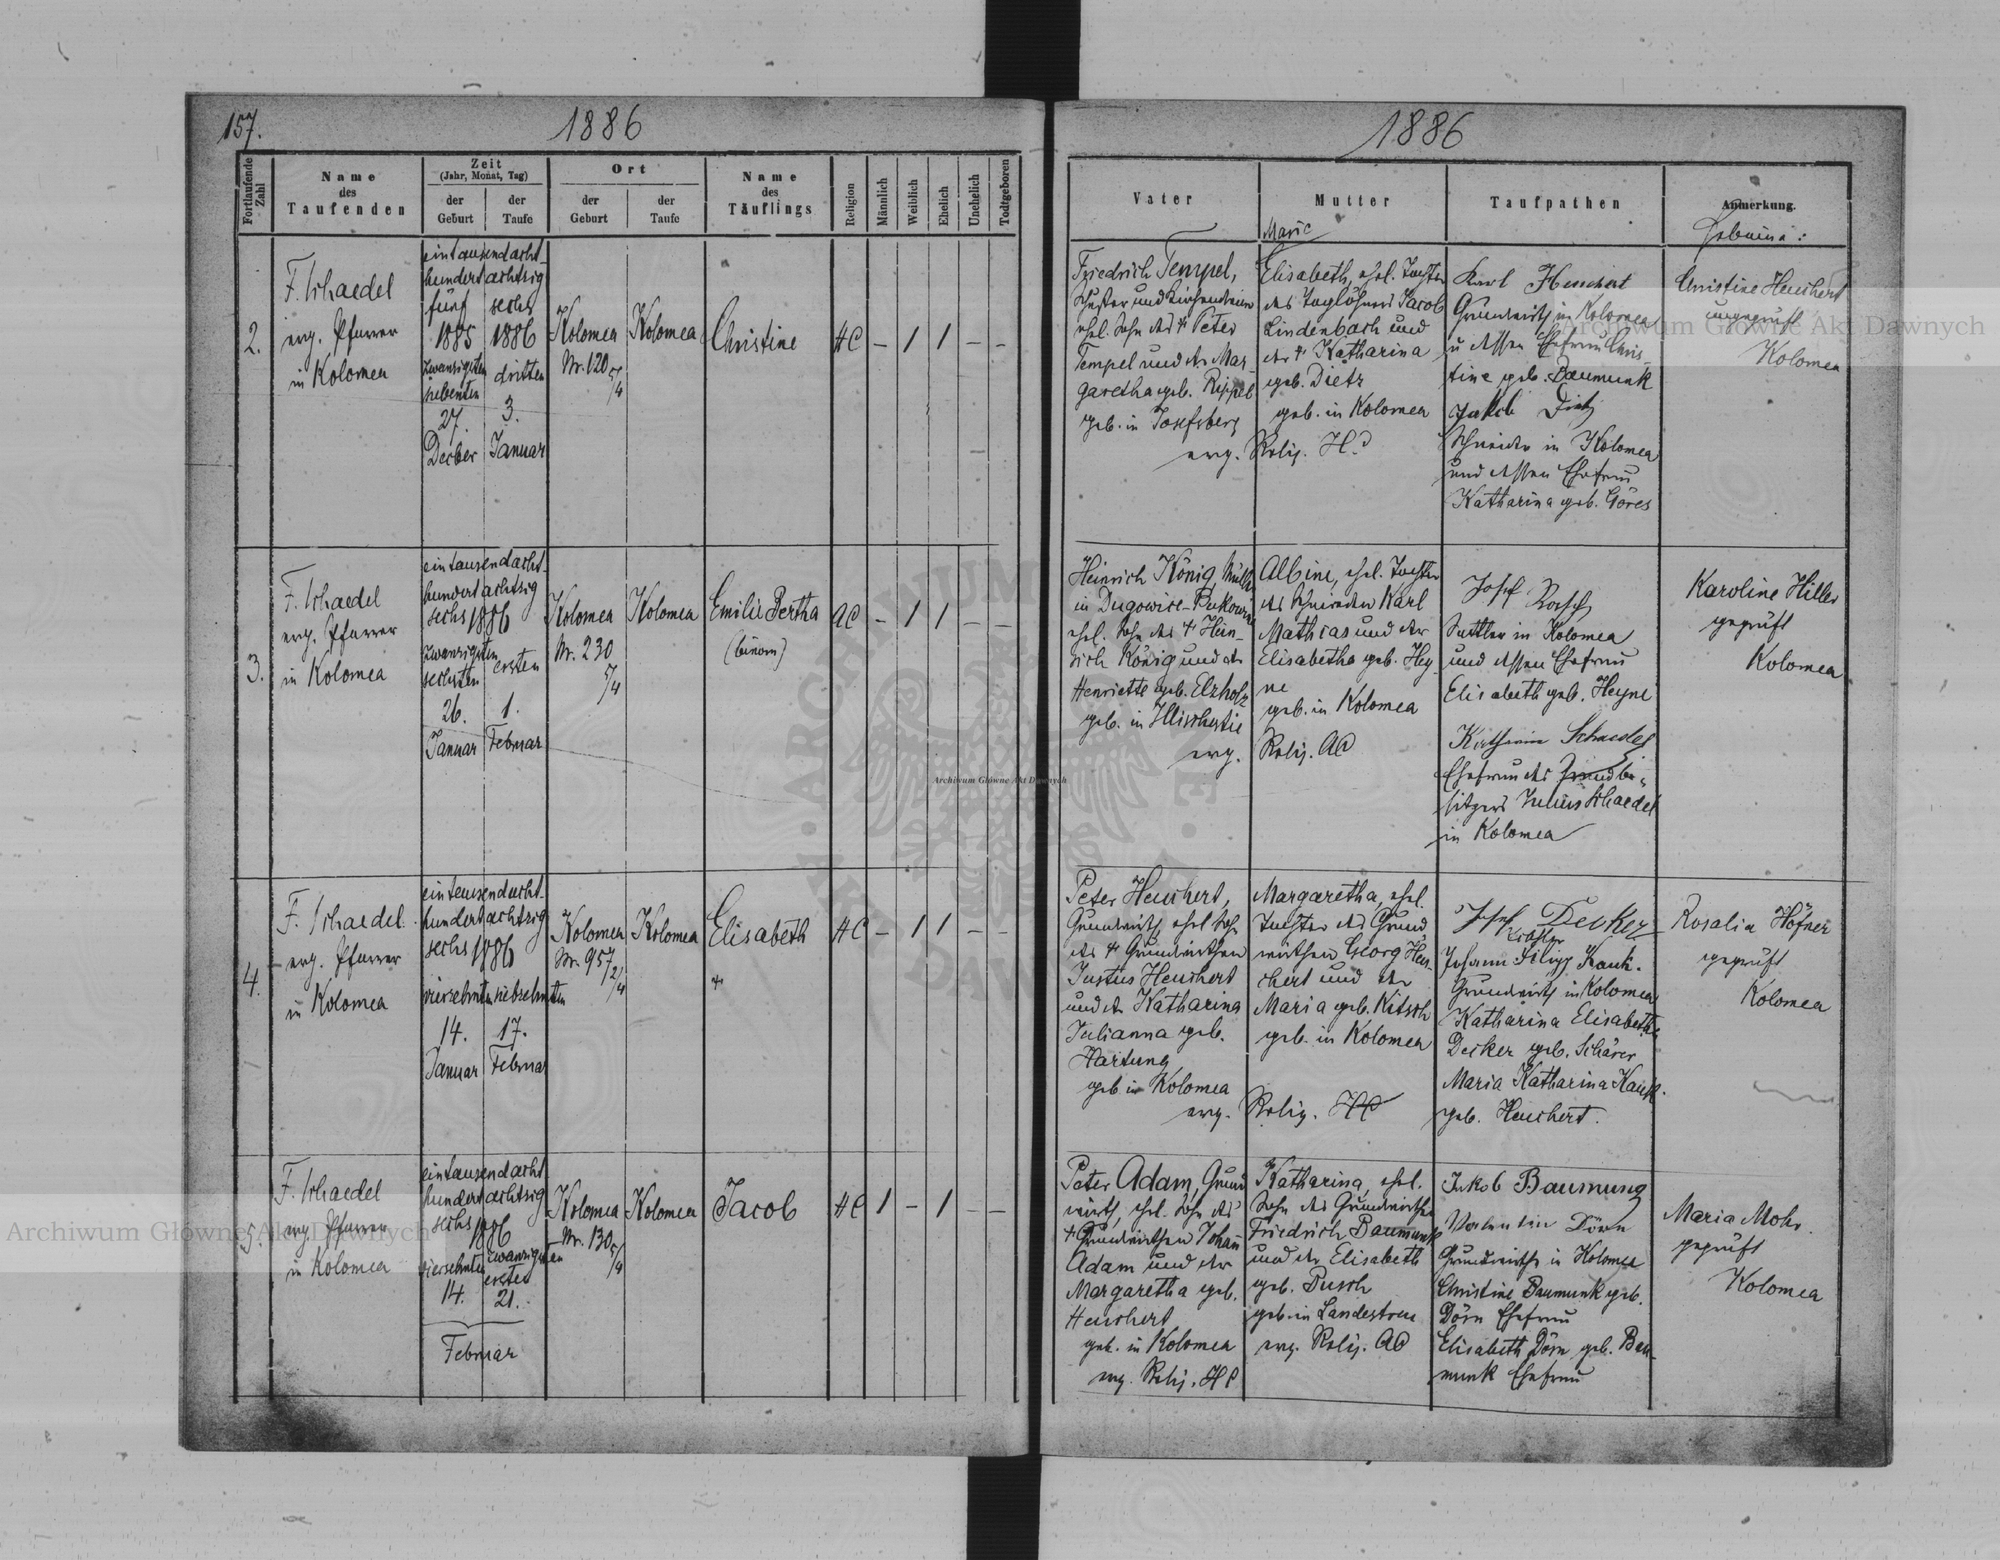 157.
1886
Fortlaufende Zahl
Name des Taufenden
Zeit
(Jahr, Monat, Tag)
der Geburt
der Taufe
Ort
der Geburt
der Taufe
Name des Täuflings
Religion
Männlich
Weiblich
Ehelich
Unehelich
Todtgeboren
2.
F. Schaedel
evg. Pfarrer
in Kolomea
eintausendacht-
hundert achtzig
fünf
1885
zwanzigsten
siebenten
27.
Decber
sechs
1886
dritten
3.
Januar
Kolomea
Nr. 120 5/4
Kolomea
Christine
HC
–
1
1
–
–
3.
F. Schaedel
evg. Pfarrer
in Kolomea
eintausendacht-
hundert achtzig
sechs 1886
zwanzigsten
sechsten
26.
Januar
ersten
1.
Februar
Kolomea
Nr. 230
5/4
Kolomea
Emilie Bertha
(binom)
AC
–
1
1
–
–
4.
F. Schaedel
evg. Pfarrer
in Kolomea
eintausendacht-
hundert achtzig
sechs 1886
vierzehnten
14.
Januar
siebzehnten
17.
Februar
Kolomea
Nr. 957 2/4
Kolomea
Elisabeth
HC
–
1
1
–
–
5.
F. Schaedel
evg. Pfarrer
in Kolomea
eintausendacht
hundert achtzig
sechs 1886
vierzehnten
14.
zwanzigsten
ersten
21.
Februar
Kolomea
Nr. 130 5/4
Kolomea
Jacob
HC
1
–
1
–
–
1886
Vater
Mutter
Taufpathen
Anmerkung.
Hebamme:
Friedrich Tempel,
Schuster und Kirchendiener
ehel. Sohn des † Peter
Tempel und der Mar-
garetha geb. Rippel
geb. in Josefsberg
Marie
Elisabeth, ehel. Tochter
des Taglöhners Jacob
Lindenbach und
der † Katharina
geb. Dietz
geb. in Kolomea
evg. Relig. HC
Karl Heuchert
Grundwirth in Kolomea
u dessen Ehefrau Chris
tine geb. Baumunk
Jakob Dietz
Schneider in Kolomea
und dessen Ehefrau
Katharina geb. Göres
Christine Heuchert
ungeprüft
Kolomea
Heinrich König, Müller
in Dugowice-Bukowina
ehel. Sohn des † Hein-
rich König und der
Henriette geb. Elzholz
geb. in Illischestie
Albine, ehel. Tochter
des Schneiders Karl
Mathias und der
Elisabetha geb. Hey
ne
geb. in Kolomea
evg. Relig. AC
Josef Rosch
Sattler in Kolomea
und dessen Ehefrau
Elisabeth geb. Heyne
Katharina Schaedel
Ehefrau des Grundbe-
sitzers Julius Schaedel
in Kolomea
Karoline Hiller
geprüft
Kolomea
Peter Heuchert,
Grundwirth, ehel. Sohn
des † Grundwirthen
Justus Heuchert
und der Katharina
Julianna geb.
Hartung
geb. in Kolomea
Margaretha, ehel.
Tochter des Grund
wirthen Georg Heu-
chert und der
Maria geb. Kitsch
geb. in Kolomea
evg. Relig. HC
Josef Decker
Johann Filipp Kauk.
Grundwirth in Kolomea
Katharina Elisabeth
Decker geb. Schärer
Maria Katharina Kauk.
geb. Heuchert.
Rosalia Höfner
geprüft
Kolomea
Peter Adam, Grund
wirth, ehel. Sohn des
† Grundwirthen Johann
Adam und der
Margaretha geb.
Heuchert
geb. in Kolomea
evg. Relig. HC
Katharina, ehel.
Sohn des Grundwirthen
Friedrich Baumunk
und der Elisabeth
geb. Pusch
geb. in Landestreu
evg. Relig. AC
Jakob Baumung
Valentin Dörn
Grundwirthe in Kolomea
Christine Baumunk geb.
Dörn Ehefrau
Elisabeth Dörn geb. Bau-
munk Ehefrau
Maria Mohr
geprüft
Kolomea
Archiwum Główne Akt Dawnych
Archiwum Główne Akt Dawnych
Archiwum Główne Akt Dawnych